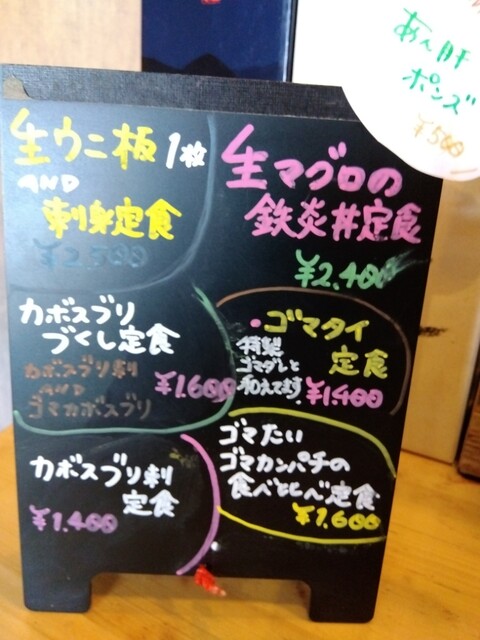 あん肝
ポンズ
¥500
生ウニ板1枚
AND
刺身定食
¥2,500
生マグロの
鉄炎丼定食
¥2,400
カボスブリ
づくし定食
カボスブリ刺
AND
ゴマカボスブリ
¥1,600
・ゴマタイ
定食
特製
ゴマダレと
和えてます
¥1,400
カボスブリ刺
定食
¥1,400
ゴマたい
ゴマカンパチの
食べ比べ定食
¥1,600